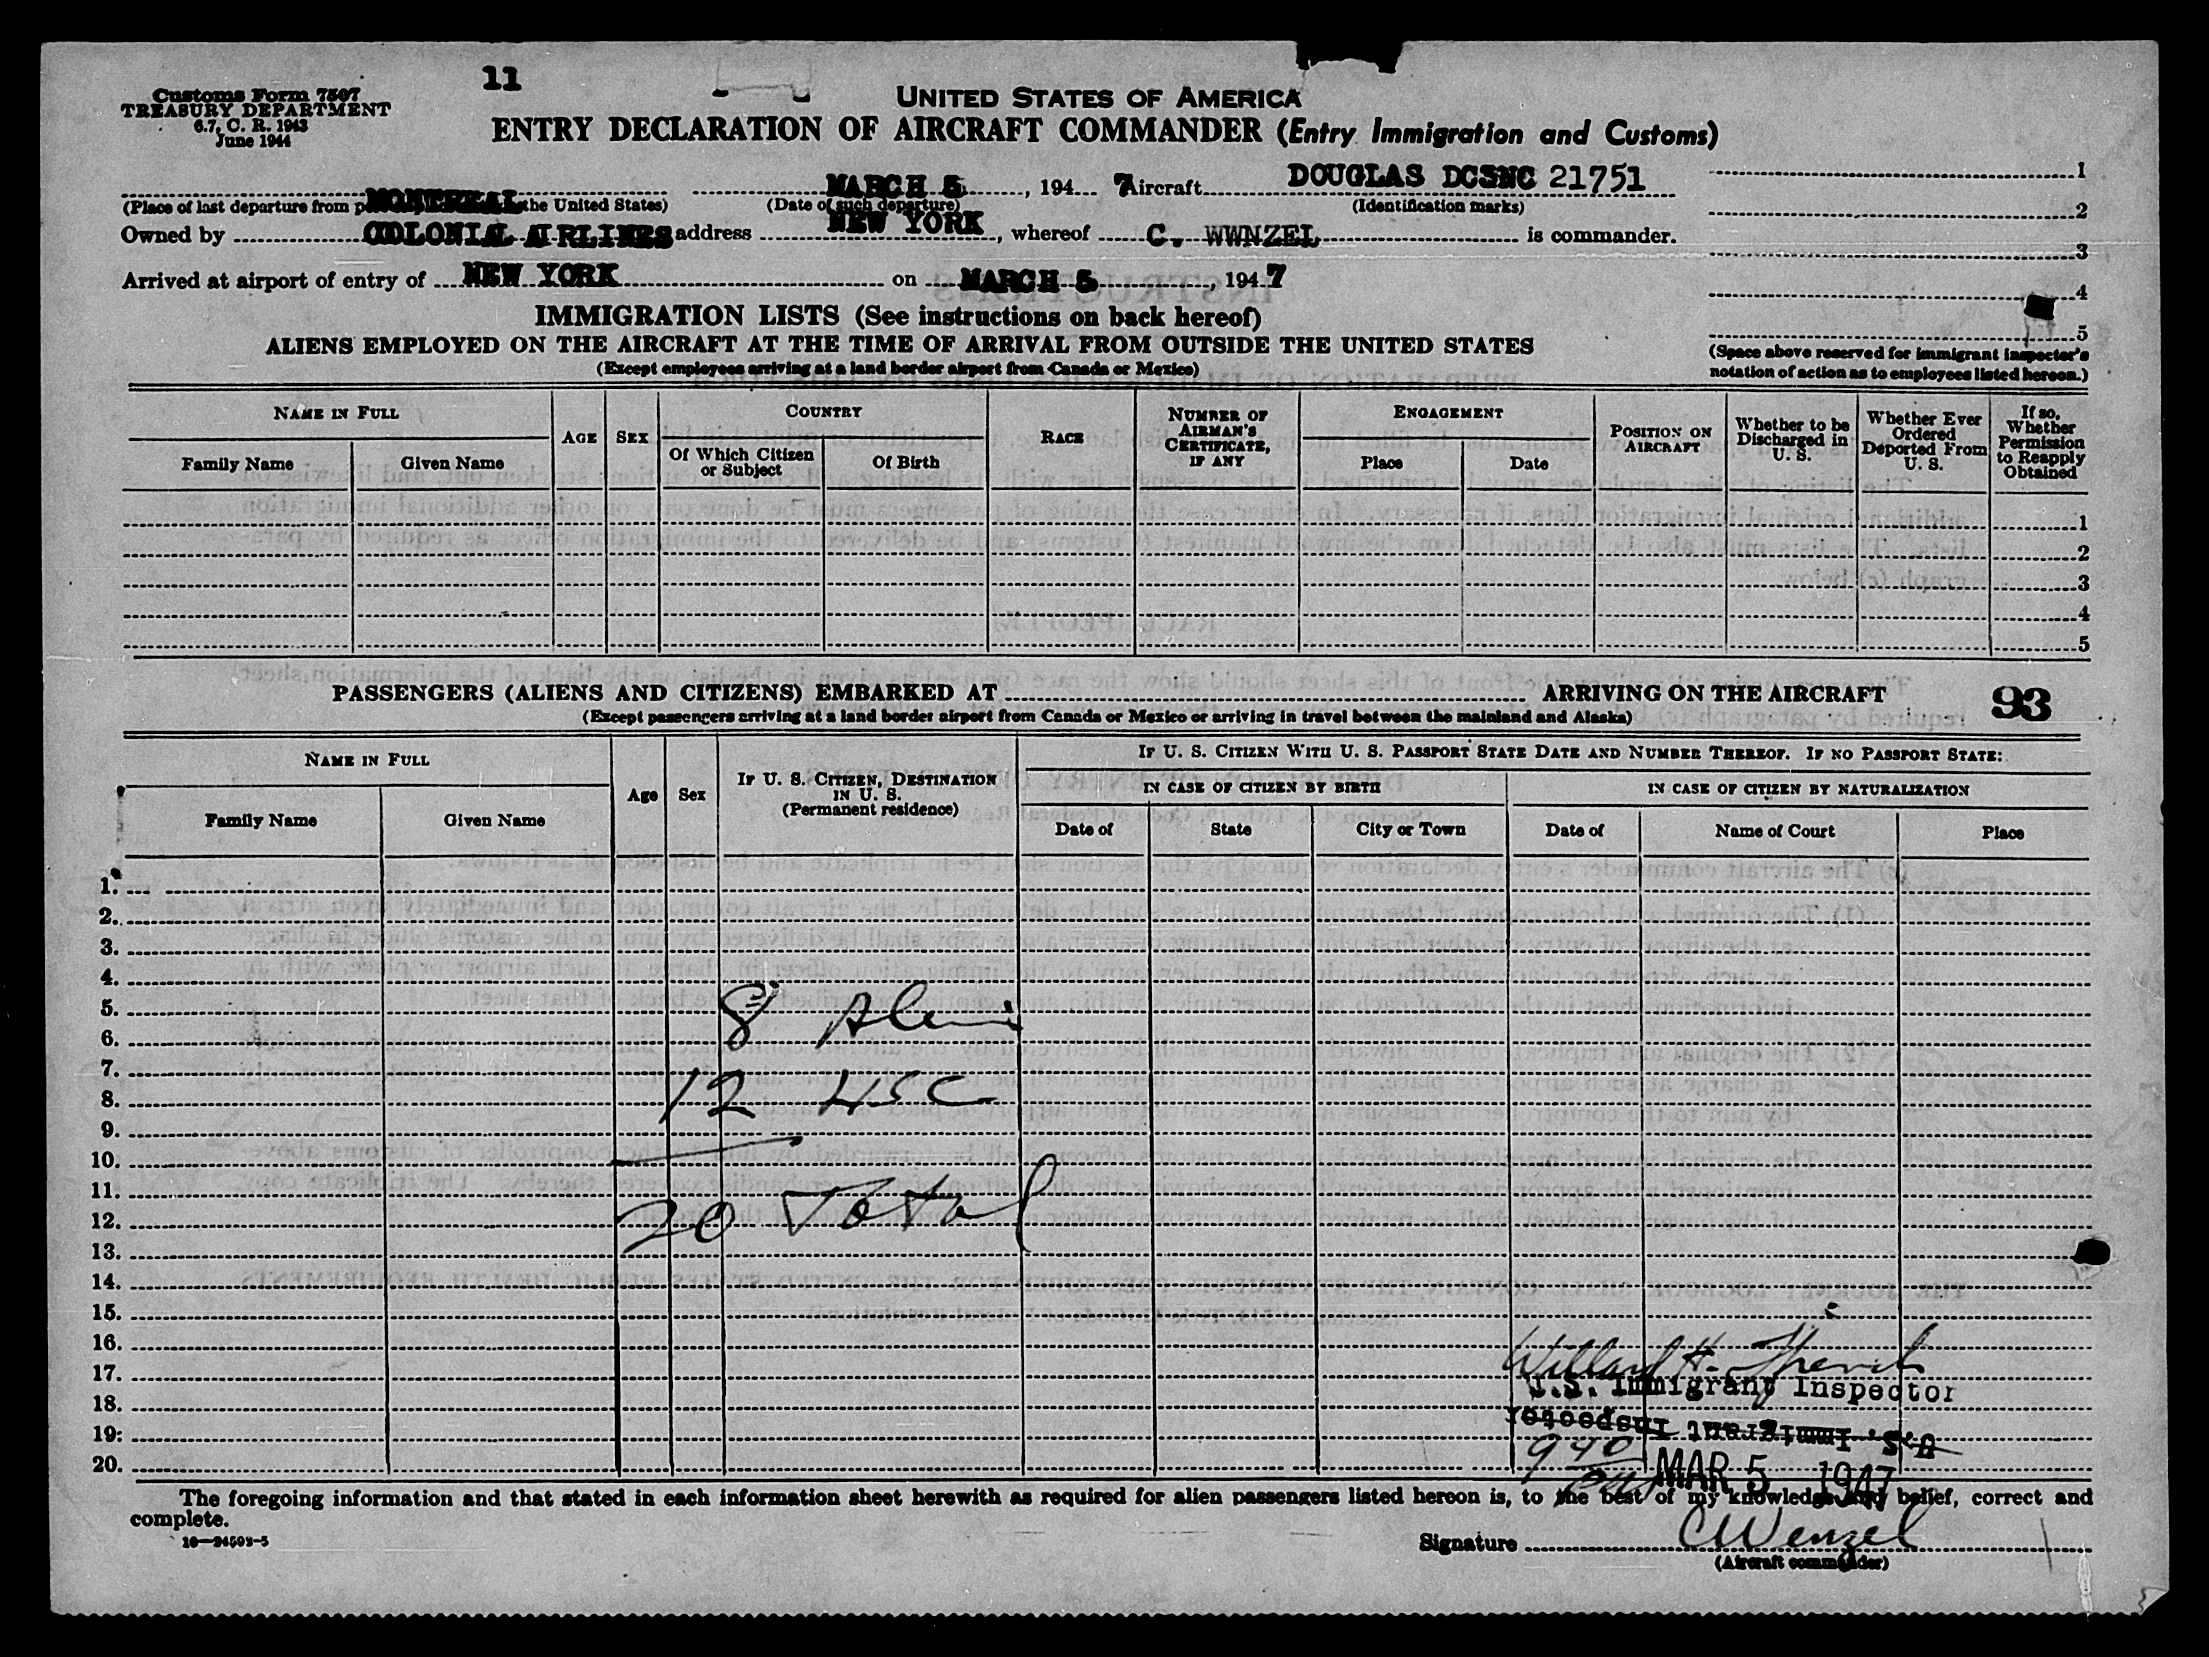 11
Customs Form 7507
TREASURY DEPARTMENT
6.7, C. R. 1943
June 1944
UNITED STATES OF AMERICA
ENTRY DECLARATION OF AIRCRAFT COMMANDER (Entry Immigration and Customs)
MONTREAL MARCH 5, 1947 Aircraft DOUGLAS DC3NC 21751
(Place of last departure from the United States) (Date of such departure) (Identification marks)
Owned by COLONIAL AIRLINES address NEW YORK, whereof C. WWNZEL is commander.
Arrived at airport of entry of NEW YORK on MARCH 5, 1947
1
2
3
4
5
(Space above reserved for immigrant inspector's
notation of action as to employees listed hereon.)
IMMIGRATION LISTS (See instructions on back hereof)
ALIENS EMPLOYED ON THE AIRCRAFT AT THE TIME OF ARRIVAL FROM OUTSIDE THE UNITED STATES
(Except employees arriving at a land border airport from Canada or Mexico)
NAME IN FULL
Family Name Given Name
AGE SEX
COUNTRY
Of Which Citizen or Subject Of Birth
RACE
NUMBER OF AIRMAN'S CERTIFICATE, IF ANY
ENGAGEMENT
Place Date
POSITION ON AIRCRAFT
Whether to be Discharged in U. S.
Whether Ever Ordered Deported From U. S.
If so, Whether Permission to Reapply Obtained
1
2
3
4
5
PASSENGERS (ALIENS AND CITIZENS) EMBARKED AT ARRIVING ON THE AIRCRAFT 93
(Except passengers arriving at a land border airport from Canada or Mexico or arriving in travel between the mainland and Alaska)
NAME IN FULL
Family Name Given Name
Age Sex
IF U. S. CITIZEN, DESTINATION IN U. S. (Permanent residence)
IF U. S. CITIZEN WITH U. S. PASSPORT STATE DATE AND NUMBER THEREOF. IF NO PASSPORT STATE:
IN CASE OF CITIZEN BY BIRTH IN CASE OF CITIZEN BY NATURALIZATION
Date of State City or Town Date of Name of Court Place
1.
2.
3.
4.
5. 8
6.
7.
8. 12 USC
9.
10.
11.
12. 20 Total
13.
14.
15.
16.
17. Willard H.
U.S. Immigrant Inspector
18.
19. U.S. Immigrant Inspector
940
20. MAR 5 1947
The foregoing information and that stated in each information sheet herewith as required for alien passengers listed hereon is, to the best of my knowledge and belief, correct and
complete.
16—24593-5
Signature C Wenzel
(Aircraft commander)